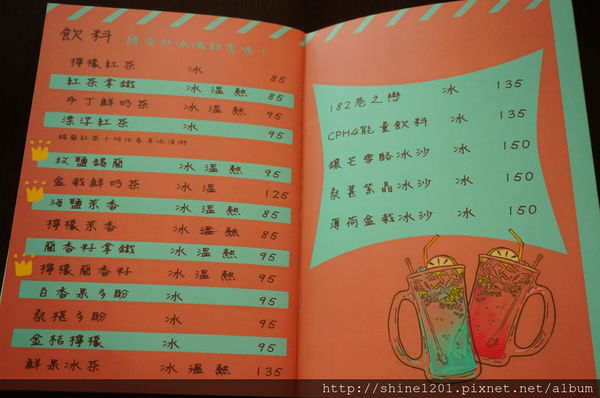 飲料 請告知冰溫甜度喔！
檸檬紅茶 冰 85
紅茶拿鐵 冰溫熱 85
布丁鮮奶茶 冰溫熱 95
漂浮紅茶 冰 95
玫鹽錫蘭 冰溫熱 95
盆栽鮮奶茶 冰溫 125
海鹽茉香 冰溫熱 85
檸檬茉香 冰溫熱 85
蘭香籽拿鐵 冰溫 95
檸檬蘭香籽 冰溫 95
百香果多酚 冰 95
桑椹多酚 冰 95
金桔檸檬 冰 95
鮮果冰茶 冰溫熱 135
182巷之戀 冰 135
CPH4能量飲料 冰 135
雪酪冰沙 冰 150
桑葚紫晶冰沙 冰 150
薄荷盆栽冰沙 冰 150
http://shine1201.pixnet.net/album